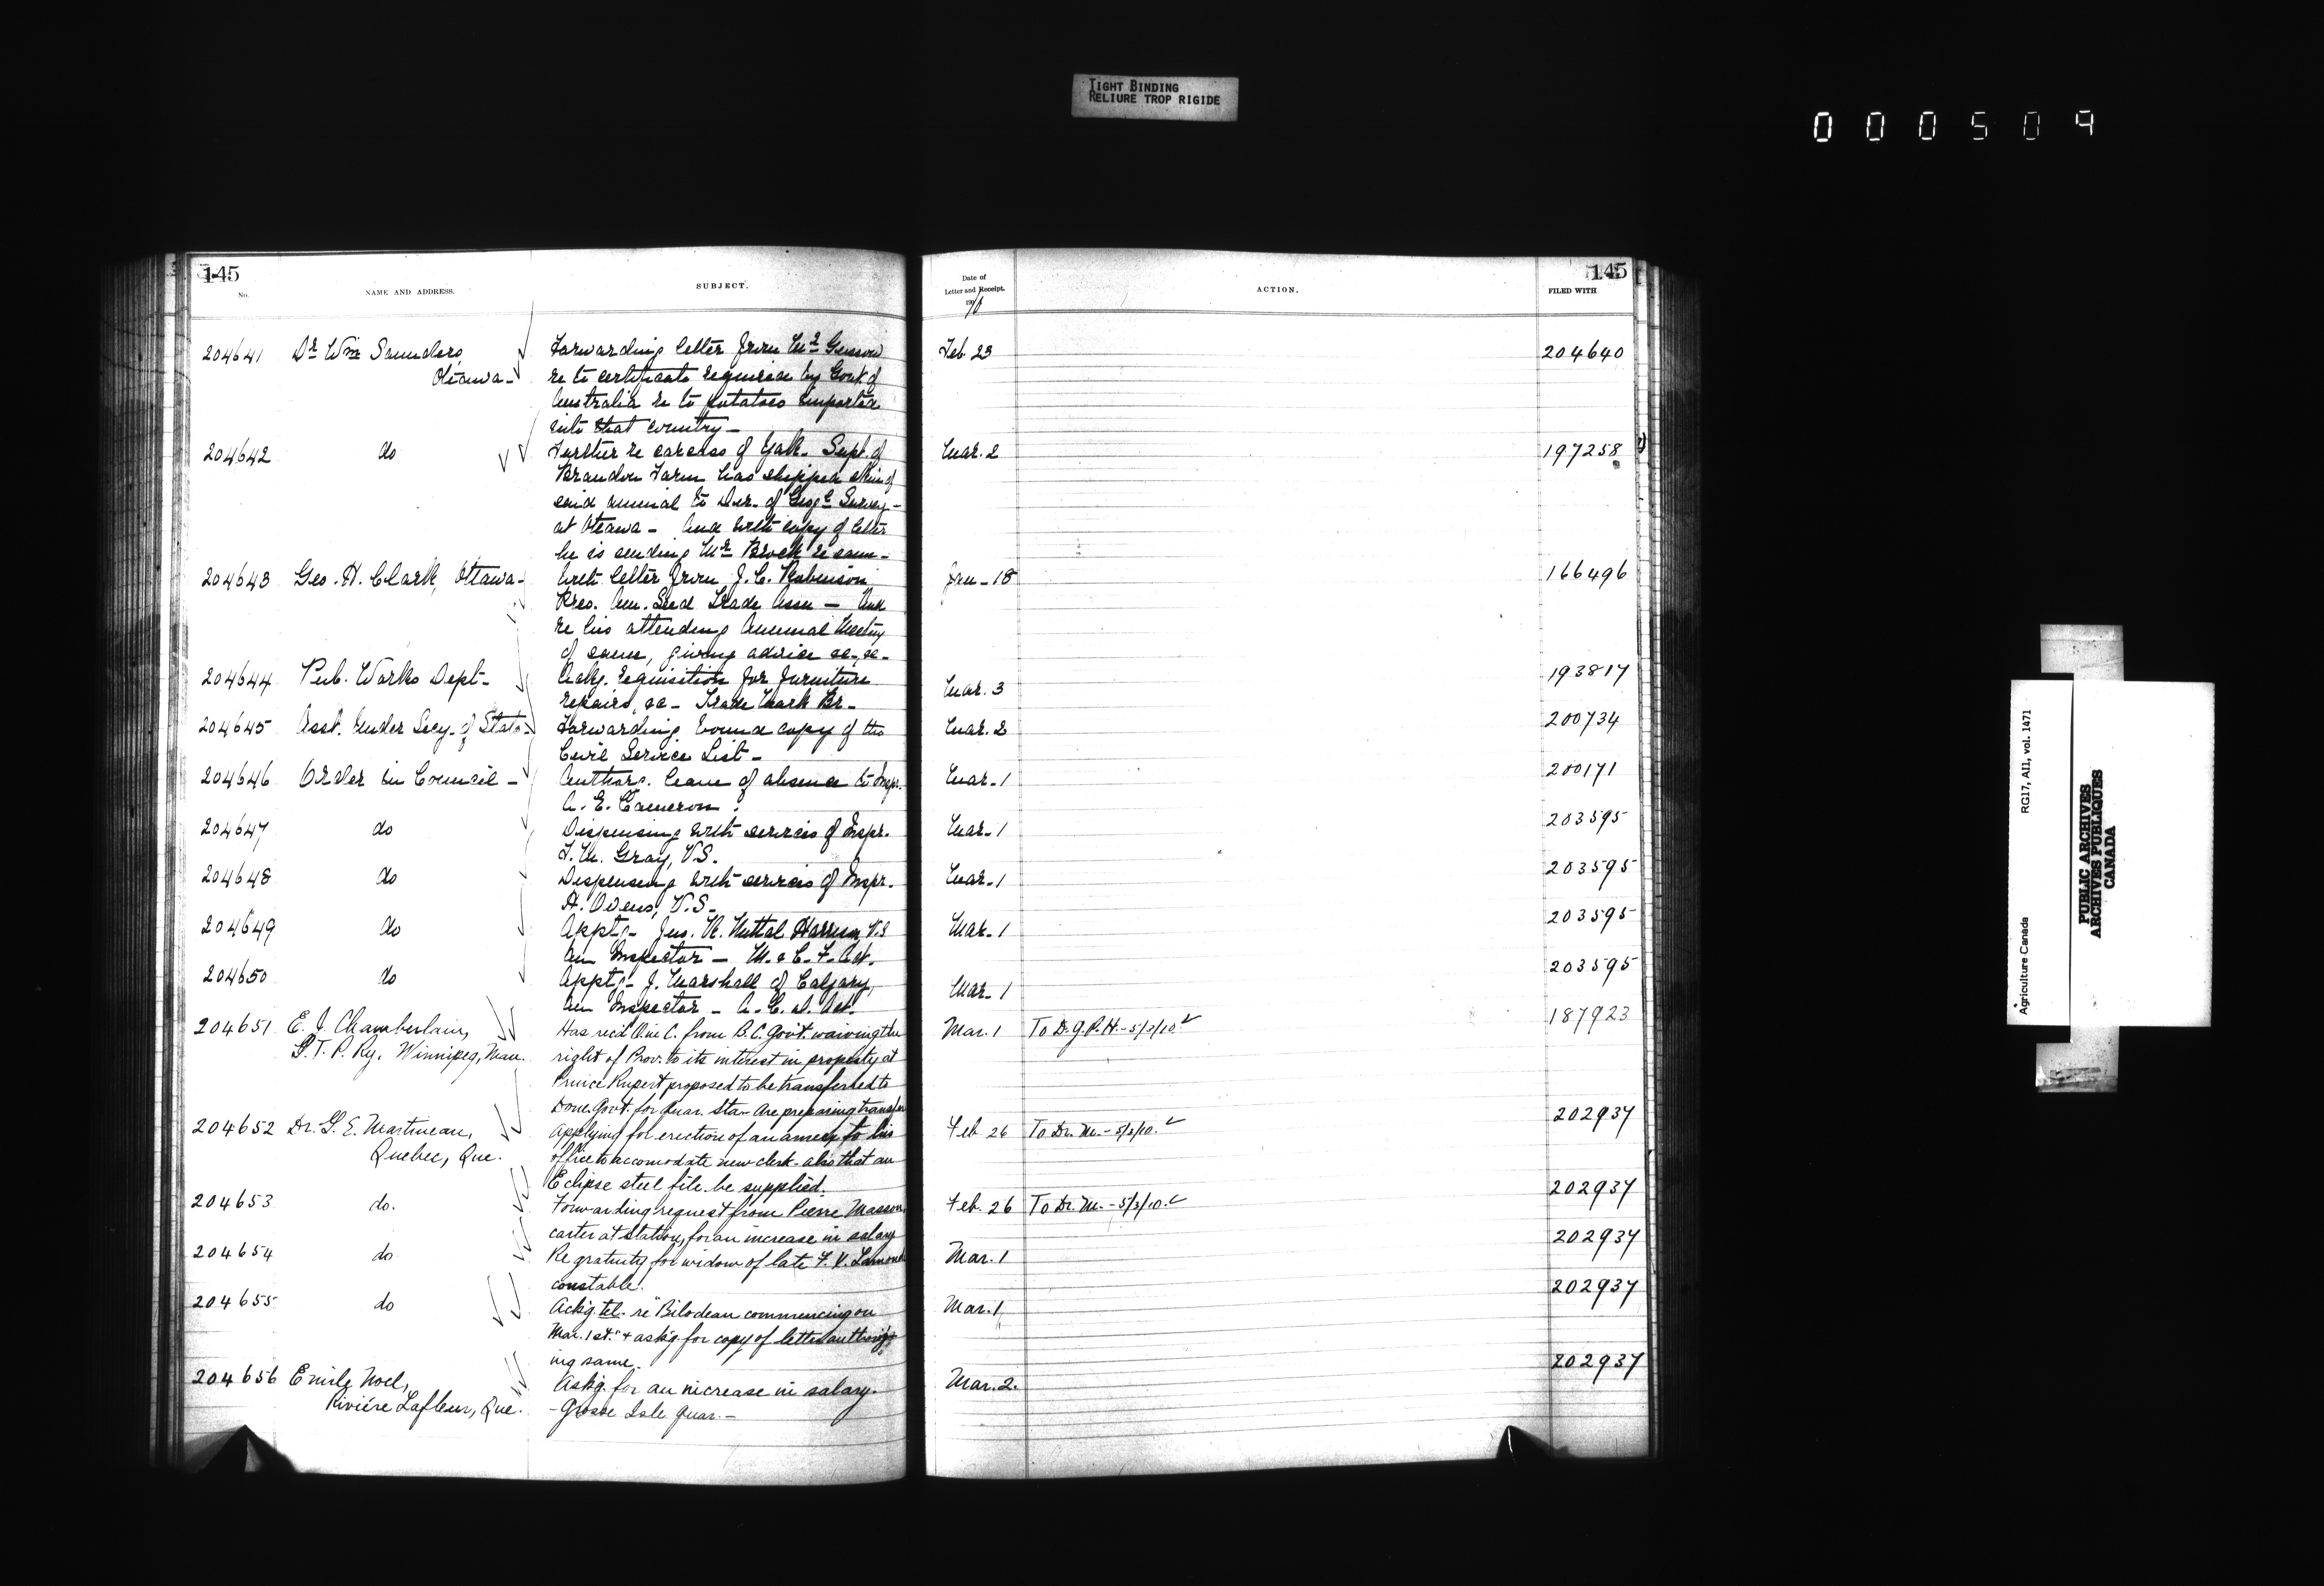 TIGHT BINDING
RELIURE TROP RIGIDE
000509
145
No.
NAME AND ADDRESS.
SUBJECT.
204641 Dr. Wm Saunders, Ottawa-
Forwarding letter from Mr.
re to certificate required by Govt of
Australia re to potatoes imported
into that country-
204642 do
Further re carcass of Yak. Supt. of
Brandon Farm has shipped skin of
said animal to Dir. of Geogl. Survey-
at Ottawa- And with copy of letter
he is sending Mr Brock re same-
204643 Geo. H. Clark, Ottawa-
With letter from J. C. Robinson
Pres. Am. Seed Trade Assn - And
re his attending Annual Meeting
of same, giving advice re
204644 Pub. Works Dept-
Ackg. requisition for furniture
repairs, &c- Trade Mark Br-
204645 Asst. Under Secy. of State-
Forwarding bound copy of the
Civil Service List-
204646 Order in Council-
Authors. leave of absence to Inspr.
A. E. Cameron.
204647 do
Dispensing with services of Inspr.
T. M. Gray, V.S.
204648 do
Dispensing with services of Inspr.
H. Owens, V.S-
204649 do
Appt:- Jno. R. Nuttal Harrison V.S
An Inspector - M. & C. F. Act.
204650 do
Appt:- J. Marshall of Calgary,
An Inspector- A. C. D. Act.
204651 E. J. Chamberlain,
G. T. P. Ry. Winnipeg, Man.
Has rec'd O in C. from B.C. Govt. waiving the
right of Prov. to its interest in property at
Prince Rupert proposed to be transferred to
Dom. Govt. for Quar. Sta- Are preparing transfer
204652 Dr. G. E. Martineau,
Quebec, Que.
Applying for erection of an annex to his
office to accomodate new clerk- also that an
Eclipse steel file be supplied.
204653 do.
Forwarding request from Pierre Masson,
carter at station, for an increase in salary
204654 do
Re gratuity for widow of late F. X.
constable.
204655 do
Ackg. tel. re "Bilodeau commencing on
Mar. 1st." + askg for copy of letter
ing same.
204656 Emile Noel,
Rivière Lafleur, Que.
Askg. for an increase in salary.
-Grosse Isle Quar.-
145
Date of
Letter and Receipt.
190
ACTION.
FILED WITH
Feb. 23 204640
Mar. 2 197258
Jan-18 166496
Mar. 3 193817
Mar. 2 200734
Mar-1 200171
Mar-1 203595
Mar-1 203595
Mar. 1 203595
Mar-1 203595
Mar. 1 To D.G.P.H.-5/3/10. 187923
Feb 26 To Dr. M.-5/3/10. 202937
Feb. 26 To Dr. M.-5/3/10. 202937
Mar. 1 202937
Mar. 1 202937
Mar. 2. 202937
Agriculture Canada
RG17, AII, vol. 1471
PUBLIC ARCHIVES
ARCHIVES PUBLIQUES
CANADA